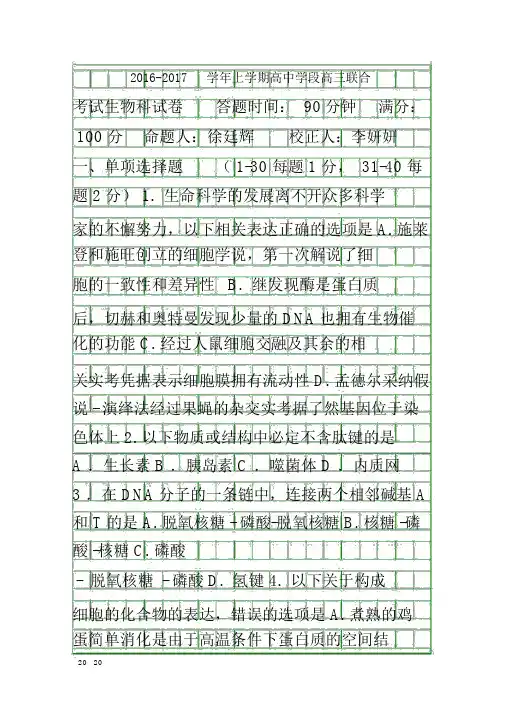 2016-2017 学年上学期高中学段高三联合
考试生物科试卷 答题时间： 90 分钟 满分：
100 分 命题人：徐廷辉 校正人：李妍妍
一、单项选择题 （ 1-30 每题 1 分， 31-40 每
题 2 分） 1. 生命科学的发展离不开众多科学
家的不懈努力，以下相关表达正确的选项是 A. 施莱
登和施旺创立的细胞学说，第一次解说了细
胞的一致性和差异性 B. 继发现酶是蛋白质
后，切赫和奥特曼发现少量的 DNA 也拥有生物催
化的功能 C. 经过人鼠细胞交融及其余的相
关实考凭据表示细胞膜拥有流动性 D. 孟德尔采纳假
说-演绎法经过果蝇的杂交实考据了然基因位于染
色体上 2. 以下物质或结构中必定不含肽键的是
A . 生长素 B . 胰岛素 C . 噬菌体 D . 内质网
3 . 在 DNA 分子的一条链中，连接两个相邻碱基 A
和 T 的是 A. 脱氧核糖 - 磷酸-脱氧核糖 B. 核糖 -磷
酸 -核糖 C. 磷酸
- 脱氧核糖 -磷酸 D. 氢键 4. 以下关于构成
细胞的化合物的表达，错误的选项是 A. 煮熟的鸡
蛋简单消化是由于高温条件下蛋白质的空间结
20 20